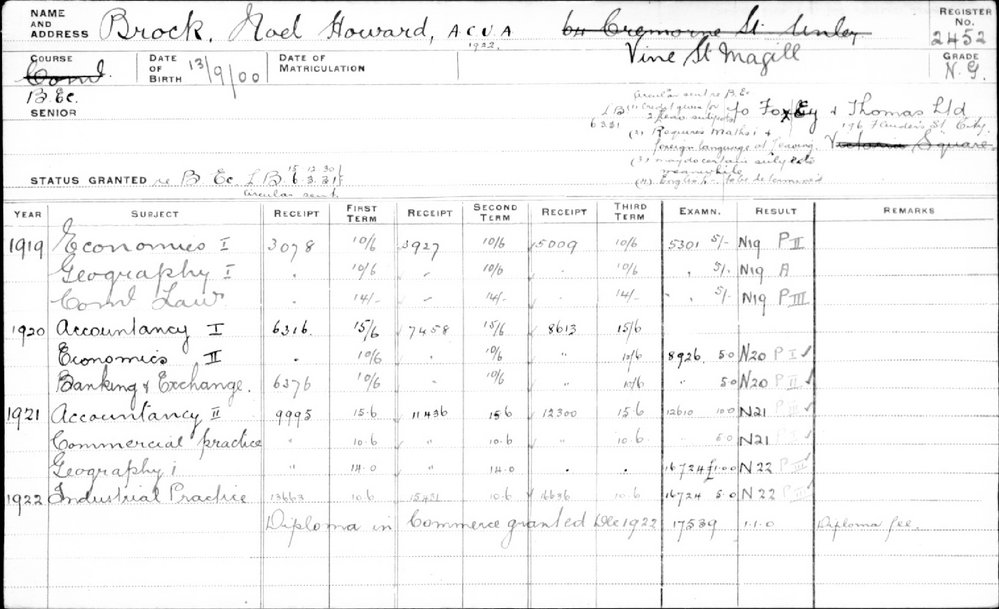 NAME AND ADDRESS Brock, Noel Howard, A C U A 1922. 64 Cremorne St. Unley
Vine St Magill
REGISTER No. 2452
GRADE N.G.
COURSE Coml. B.Ec. DATE OF BIRTH 13/9/00 DATE OF MATRICULATION
SENIOR
Circular sent re B.Ec.
L B 6.3.31 (1) Credit given for
(2) Requires Maths i &
foreign language at Leaving.
(3) may do certain subjects
meanwhile
(4) English to be determined
c/o Foy & Thomas Ltd
196 Flinders St. City.
Victoria Square.
STATUS GRANTED re B Ec. L B 15.12.30 6.3.31
Circular sent
YEAR SUBJECT RECEIPT FIRST TERM RECEIPT SECOND TERM RECEIPT THIRD TERM EXAMN. RESULT REMARKS
1919 Economics I 3078 10/6 3927 10/6 5009 10/6 5301 5/- N19 P II
Geography I " 10/6 " 10/6 10/6 " 5/- N19 A
Coml Law " 14/- " 14/- 14/- " 5/- N19 P III
1920 Accountancy I 6316 15/6 7458 15/6 8613 15/6
Economics II " 10/6 " 10/6 " 10/6 8926 5.0 N20 P I ✓
Banking & Exchange. 6376 10/6 " 10/6 10/6 " 5.0 N20 P II ✓
1921 Accountancy II 9995 15.6 11436 15.6 12300 15.6 12610 10.0 N21 P II ✓
Commercial practice " 10.6 " 10.6 " 10.6 5.0 N21 P ✓
Geography i " 14.0 " 14.0 . . 16724 £1.00 N22 P III ✓
1922 Industrial Practice 13663 10.6 15421 10.6 16636 10.6 16724 5.0 N22 P II ✓
Diploma in Commerce granted Dec 1922 17539 1.1.0 Diploma fee.